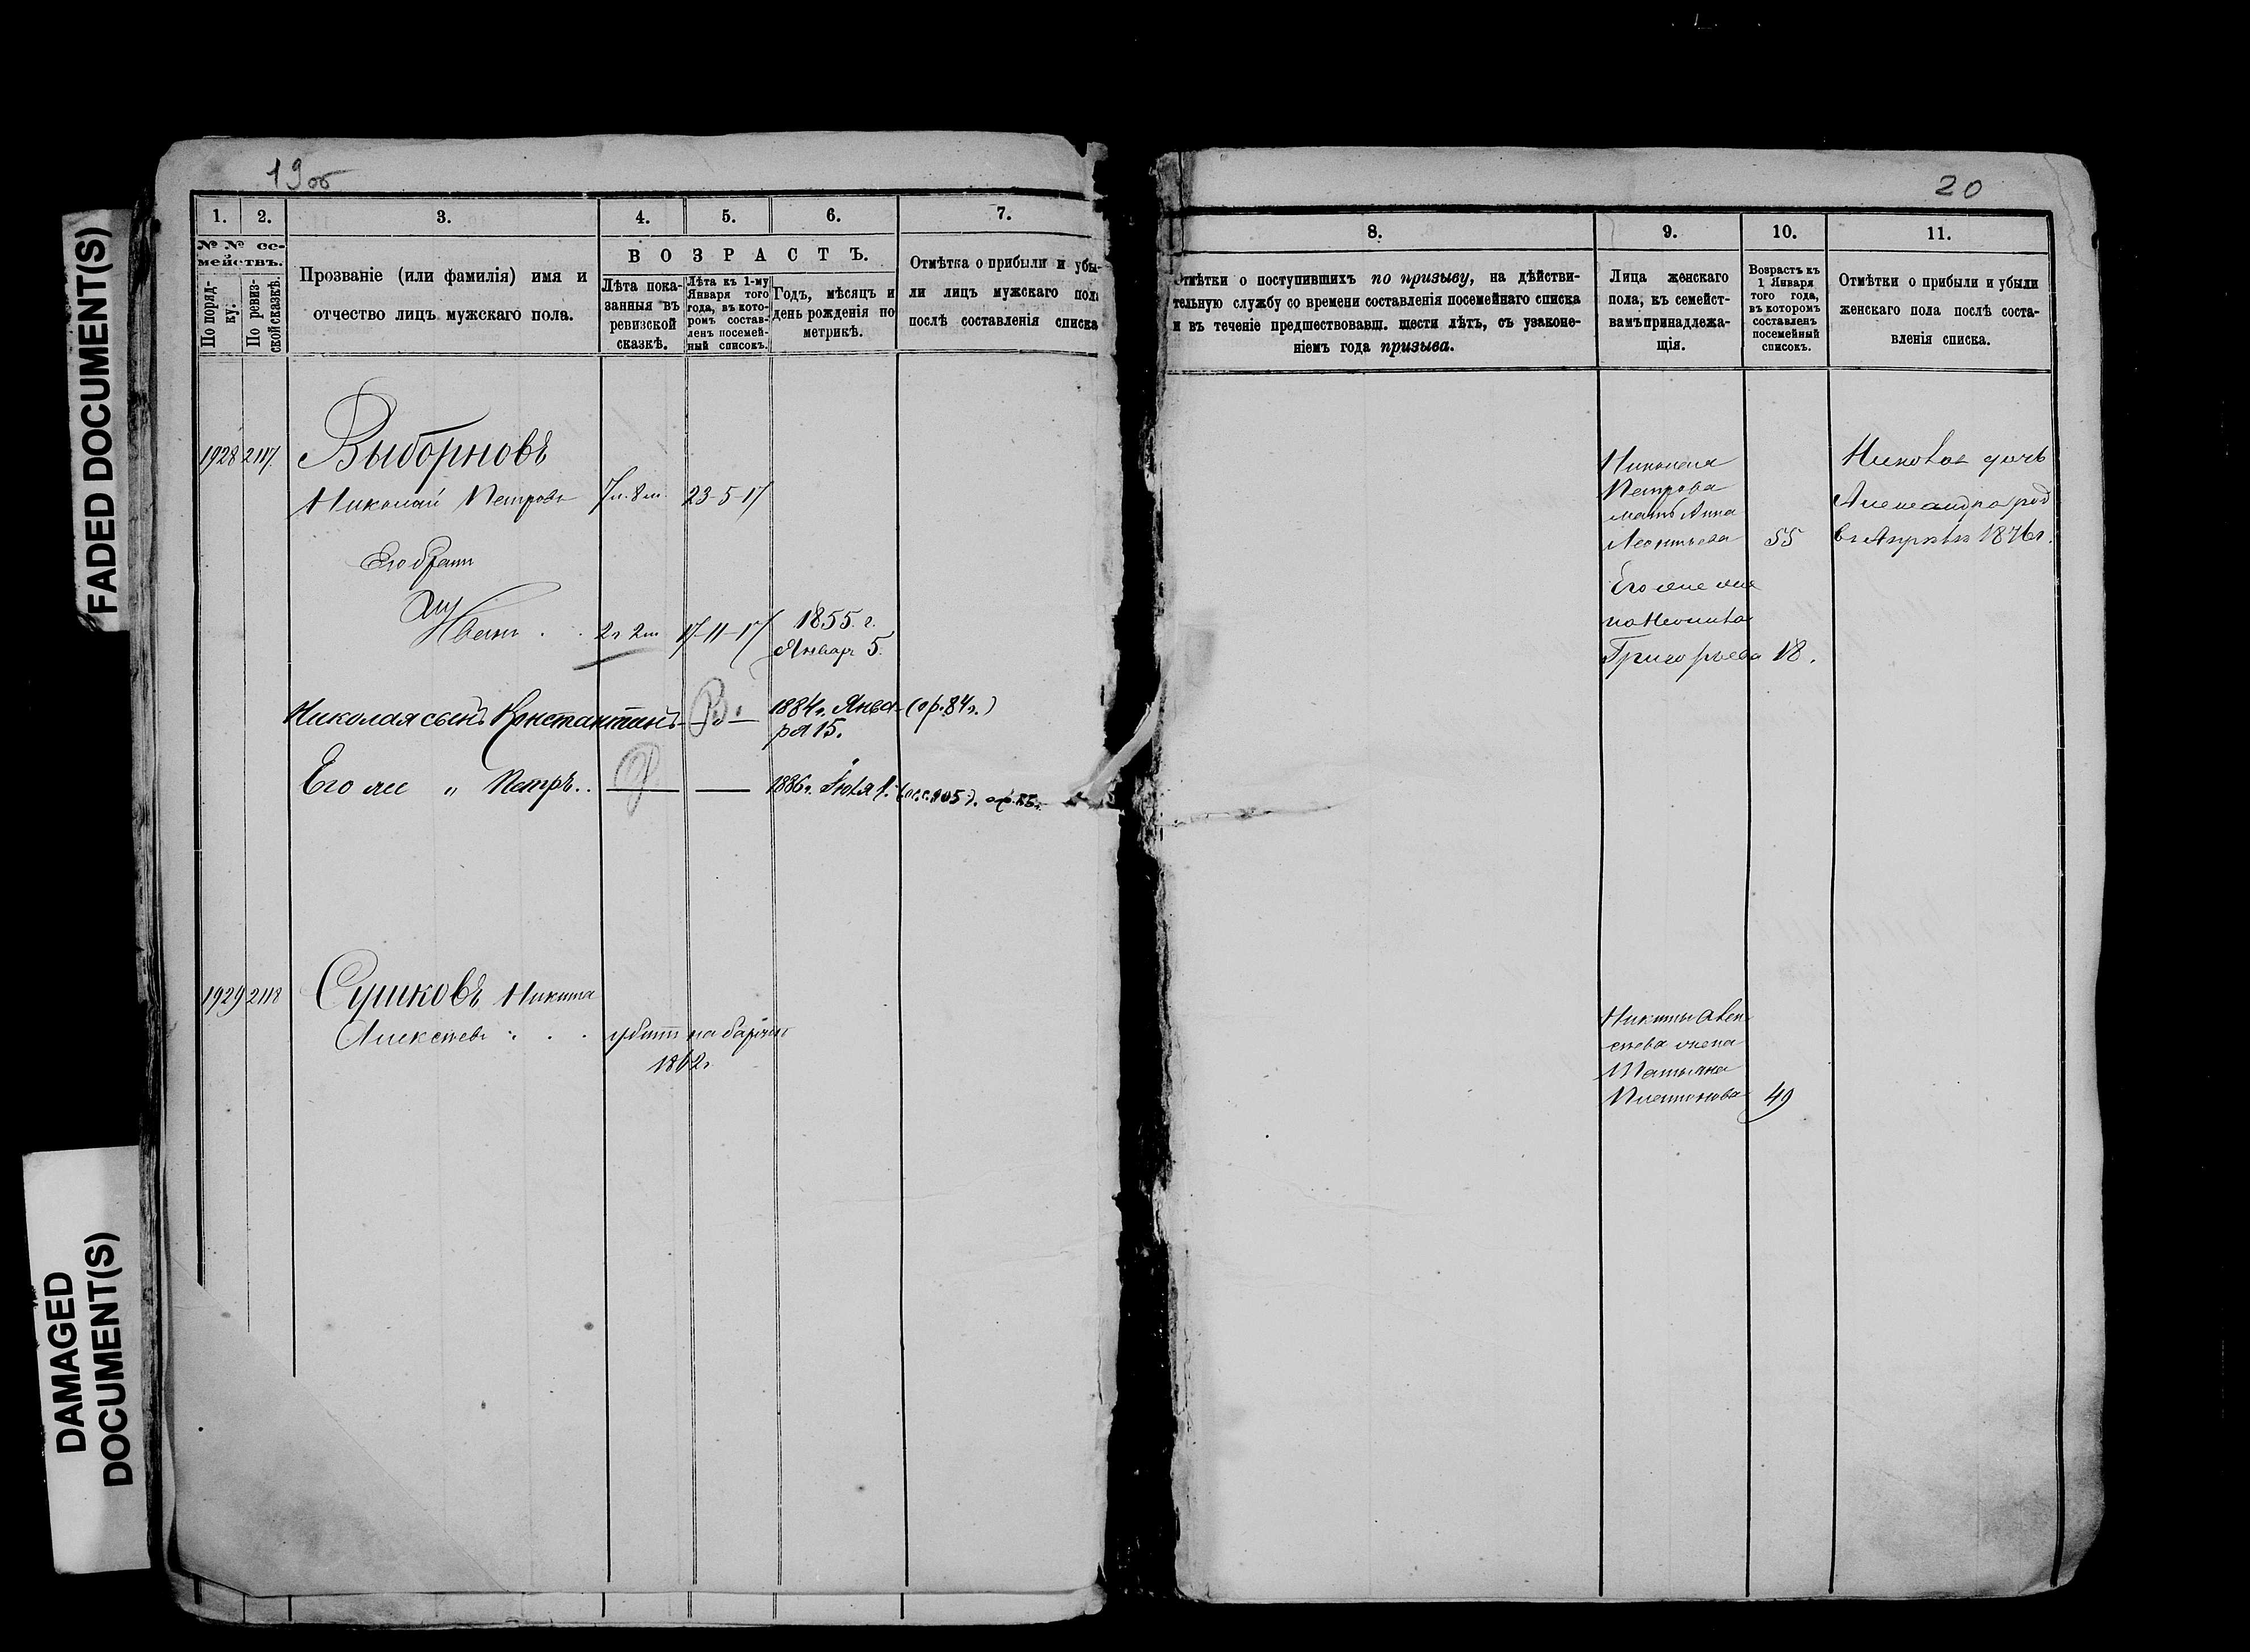 FADED DOCUMENT(S)
DAMAGED
DOCUMENT(S)
19об
1.
2.
3.
4.
5.
6.
7.
№ № се-
мействъ.
По поряд-
ку.
По ревиз-
ской сказкѣ.
Прозваніе (или фамилія) имя и
отчество лицъ мужскаго пола.
ВОЗРАСТЪ.
Лѣта пока-
занныя въ
ревизской
сказкѣ.
Лѣта къ 1-му
Января того
года, въ кото-
ромъ состав-
ленъ посемей-
ный списокъ.
Годъ, мѣсяцъ и
день рожденія по
метрикѣ.
Отмѣтка о прибыли и убы-
ли лицъ мужскаго пола
послѣ составленія списка
1928 2117. Выборновъ
Николай Петровъ 7 л. 8 м. 23-5-17
Его братъ
Иванъ 2 г 2 м 17-11-17 1855. г.
Январ 5.
Николая сынъ Константинъ — В. — 1884 г. Янва- (ор. 84 г.)
ря 15.
Его же " Петръ.. — — 1886 г. Іюля 1.
1929 2118 Сушковъ Никита
Алексѣевъ убитъ на
1862 г
20
8.
9.
10.
11.
Отмѣтки о поступившихъ по призыву, на дѣйстви-
тельную службу со времени составленія посемейнаго списка
и въ теченіе предшествовавш. шести лѣтъ, съ узаконе-
ніемъ года призыва.
Лица женскаго
пола, къ семейст-
вамъ принадлежа-
щія.
Возрастъ къ
1 Января
того года,
въ которомъ
составленъ
посемейный
списокъ.
Отмѣтки о прибыли и убыли
женскаго пола послѣ соста-
вленія списка.
Николая
Петрова
мать Анна
Леонтьева 55
Его же
Григорьева 18.
дочь
Александра род
въ Апрѣлѣ 1876 г.
Никиты Алек
сѣева жена
Татьяна
Платонова 49